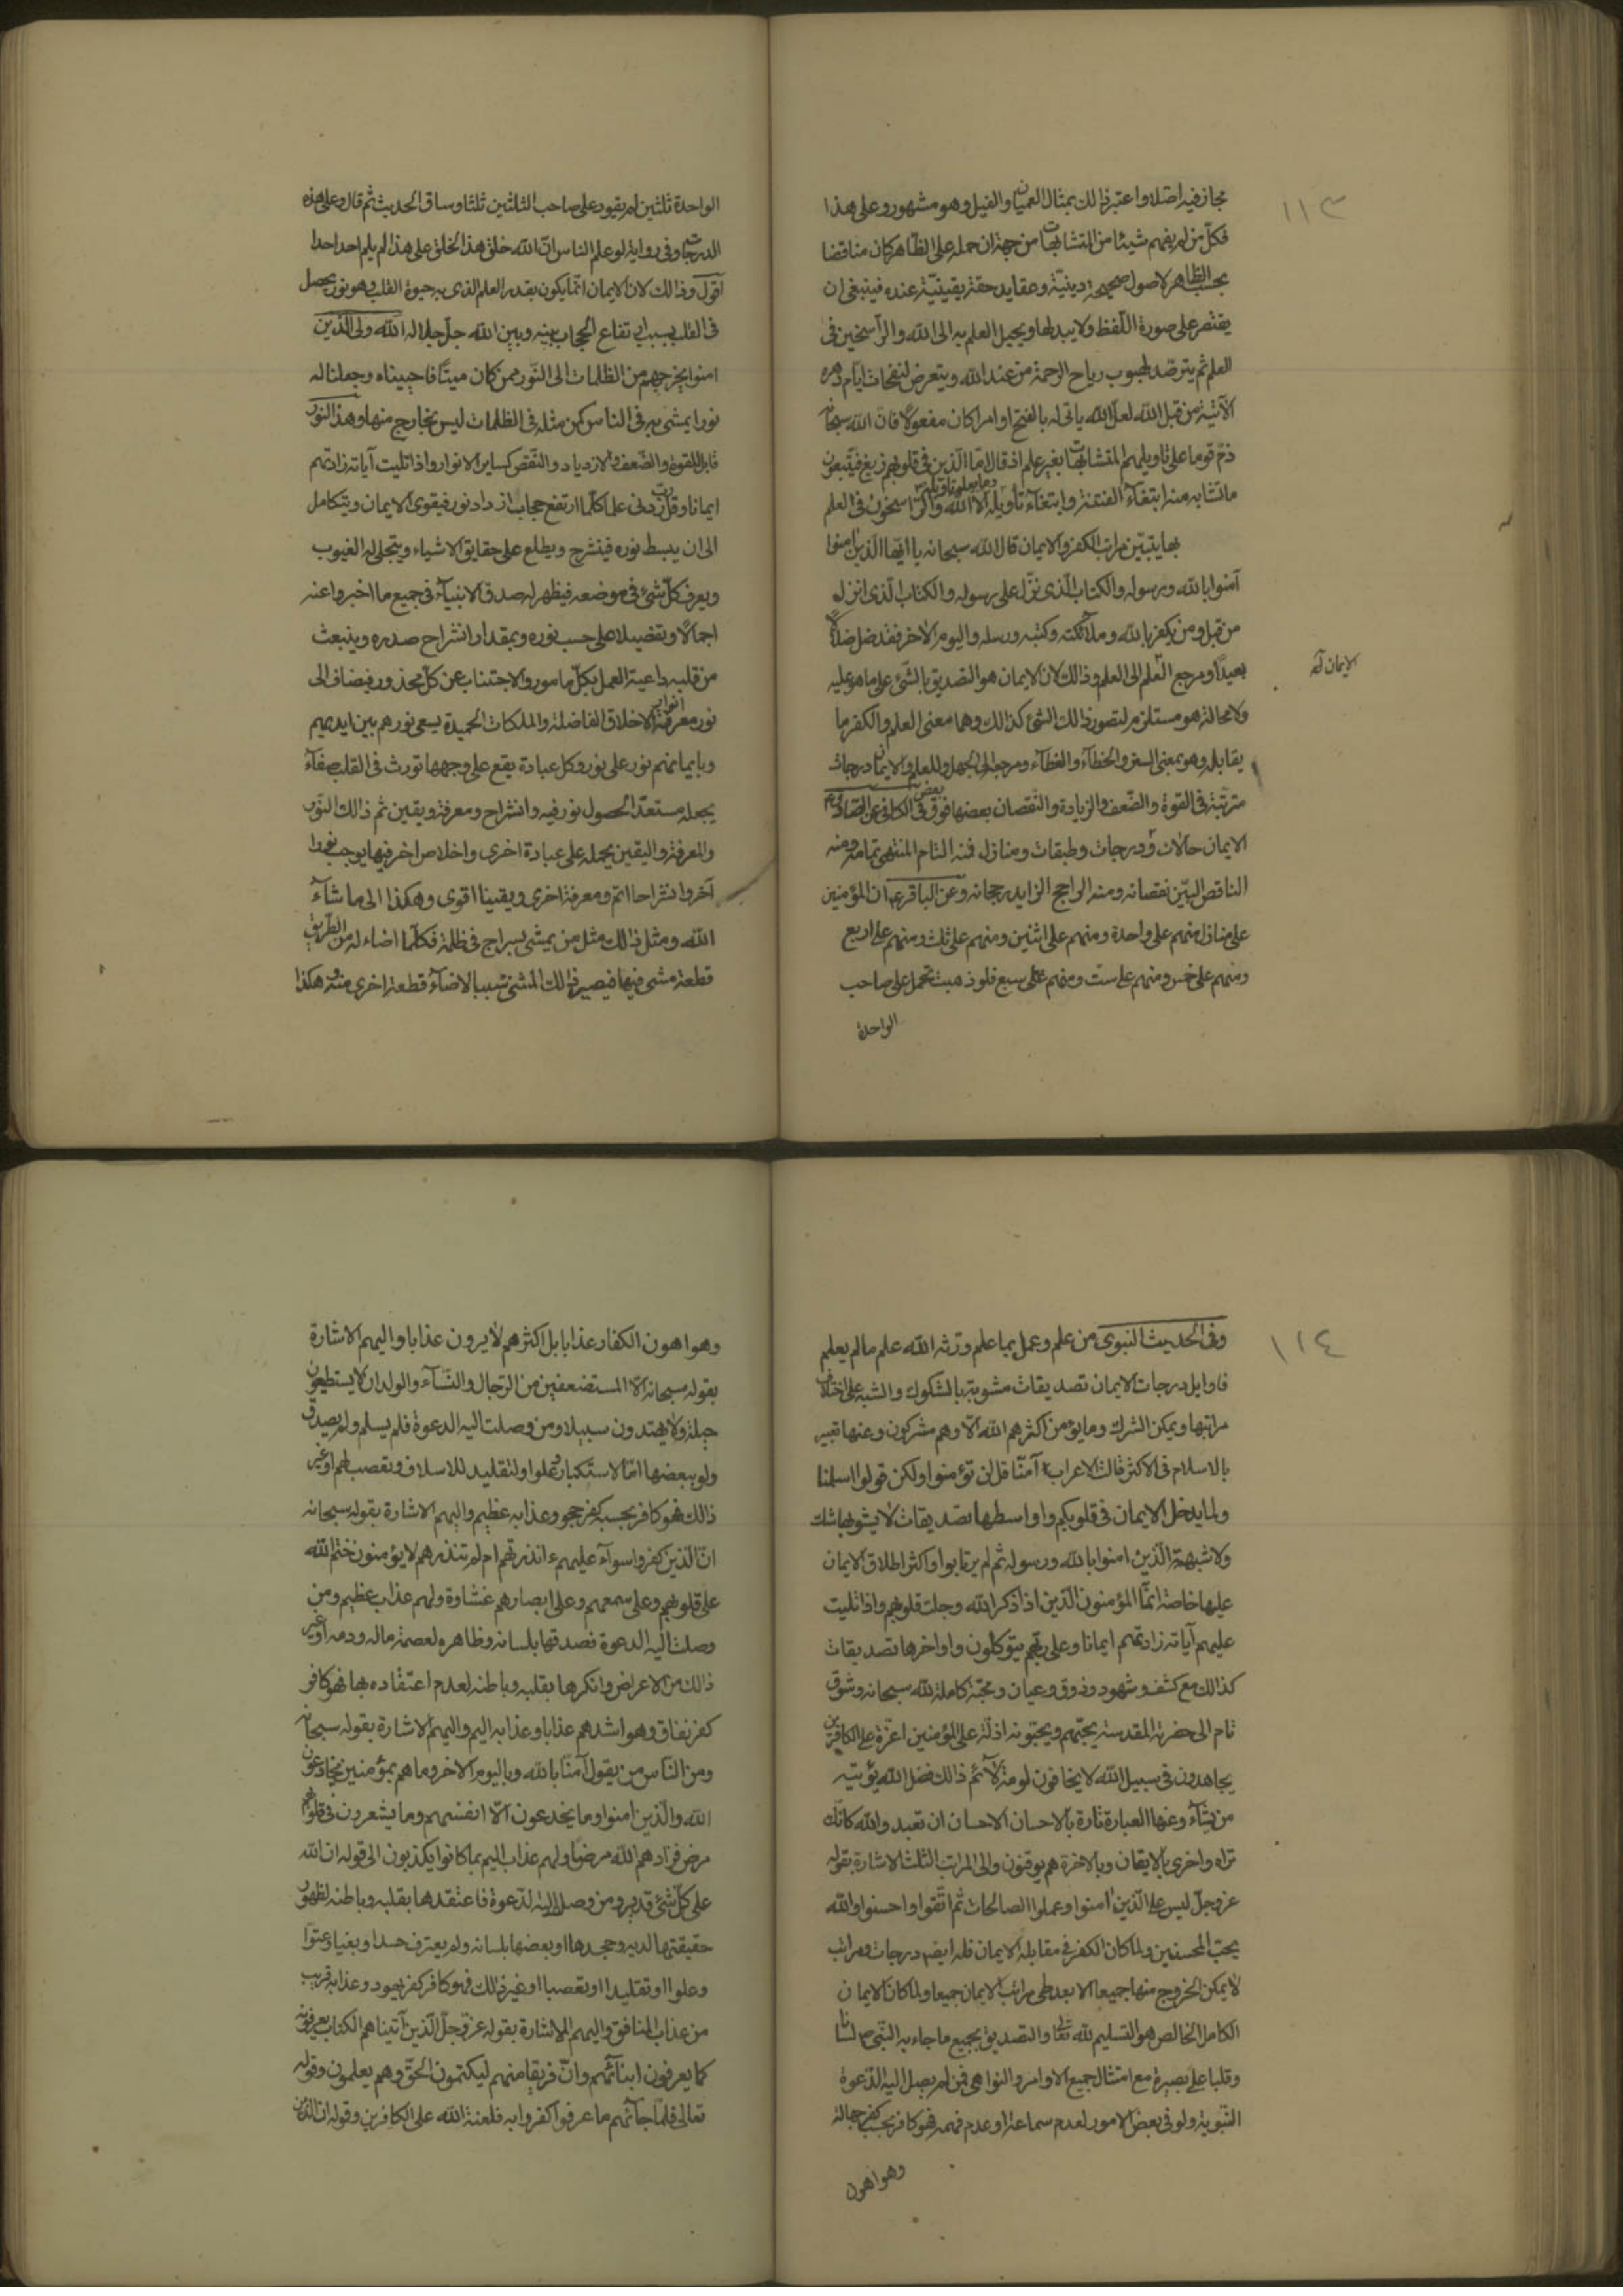 ١١٣
مجاز فيه اصلا واعتبر ذالك بمثال العميان والفيل وهو مشهور وعلى هذا
فكل من لم يفهم شيئا من المتشابهات من جهة ان حمله على الظاهر كان مناقضا
بحسب الظاهر لاصول صحيحة دينية وعقايد حقة يقينية عنده فينبغى ان
يقتصر على صورة اللفظ ولا يبدلها ويحيل العلم به الى الله والراسخين فى
العلم ثم يترصد لهبوب رياح الرحمة من عند الله ويتعرض لنفحات ايام دهره
الآتية من قبل الله لعل الله ياتى له بالفتح او امرا كان مفعولا فان الله سبحانه
ذم قوما على تاويلهم المتشابهات بغير علم اذ قال اما الذين فى قلوبهم زيغ فيتبعون
ما تشابه منه ابتغاء الفتنة وابتغاء تأويله وما يعلم تاويله الا الله والراسخون فى العلم
بها يتبين مراتب الكفر والايمان قال الله سبحانه يا ايها الذين امنوا
آمنوا بالله ورسوله والكتاب الذى نزل على رسوله والكتاب الذى انزل
من قبل ومن يكفر بالله وملائكته وكتبه ورسله واليوم الاخر فقد ضل ضلالا
بعيدا ومرجع العلم الى العلم وذالك لان الايمان هو التصديق بالشئ على ماهو عليه
ولا محالة هو مستلزم لتصور ذالك الشئ كذالك وهما معنى العلم والكفر ما
يقابله وهو بمعنى الستر والخطآء والغطآء ومرجعه الى الجهل وللعلم والايمان درجات
مترتبة فى القوة والضعف والزيادة والنقصان بعضها فوق بعض فى الكافى عن الصادق ع
الايمان حالات ودرجات وطبقات ومنازل فمنه التام المنتهى تمامه ومنه
الناقص البين نقصانه ومنه الراجح الزايد رجحانه وعن الباقر ع ان المؤمنين
على منازل منهم على واحدة ومنهم على اثنين ومنهم على ثلث ومنهم على اربع
ومنهم على خمس ومنهم على ست ومنهم على سبع فلو ذهبت تحمل على صاحب
الواحدة
الواحدة ثلثين لم يقو وعلى صاحب الثلثين ثلثا وساق الحديث ثم قال وعلى هذه
الدرجات وفى رواية لو علم الناس ان الله خلق هذا الخلق على هذا لم يلم احد احدا
اقول وذالك لان الايمان انما يكون بقدر العلم الذى به حيوة القلب وهو نور يحصل
فى القلب بسبب ارتفاع الحجاب بينه وبين الله جل جلاله الله ولى الذين
امنوا يخرجهم من الظلمات الى النور ومن كان ميتا فاحييناه وجعلنا له
نورا يمشى به فى الناس كمن مثله فى الظلمات ليس بخارج منها وهذا النور
قابل للقوة والضعف والازدياد والنقص كساير الانوار واذا تليت آياته زادتهم
ايمانا وقل رب زدنى علما كلما ارتفع حجاب ازداد نور فيقوى الايمان ويتكامل
الى ان ينبسط نوره فينشرح ويطلع على حقايق الاشياء ويتجلى له الغيوب
ويعرف كل شئ فى موضعه فيظهر له صدق الانبيآء فى جميع ما اخبروا عنه
اجمالا وتفصيلا على حسب نوره وبمقدار انشراح صدره وينبعث
من قلبه داعية العمل بكل مامور والاجتناب عن كل محذور فيضاف الى
نور معرفته انوار الاخلاق الفاضلة والملكات الحميدة يسعى نورهم بين ايديهم
وبايمانهم نور على نور وكل عبادة يقع على وجهها تورث فى القلب صفآء
يجعله مستعدا لحصول نور فيه وانشراح ومعرفة ويقين ثم ذالك النور
والمعرفة واليقين يحمله على عبادة اخرى واخلاص اخر فيها يوجب نورا
آخر وانشراحا اتم ومعرفة اخرى ويقينا اقوى وهكذا الى ماشآء
الله ومثل ذالك مثل من يمشى بسراج فى ظلمة فكلما اضاء له من الطريق
قطعة مشى فيها فيصير ذالك المشى سببا لاضآءة قطعة اخرى منه وهكذا
١١٤
وفى الحديث النبوى من علم وعمل بما علم ورثه الله علم مالم يعلم
فاوايل درجات الايمان تصديقات مشوبة بالشكوك والشبه على اختلاف
مراتبها ويمكن الشرك وما يؤمن اكثرهم الله الا وهم مشركون وعنها تعبير
بالاسلام فى الاكثر قالت الاعراب آمنا قل لن تؤمنوا ولكن قولوا اسلمنا
ولما يدخل الايمان فى قلوبكم واواسطها تصديقات لا يشوبها شك
ولا شبهة الذين امنوا بالله ورسوله ثم لم يرتابوا واكثر اطلاق الايمان
عليها خاصة انما المؤمنون الذين اذا ذكر الله وجلت قلوبهم واذا تليت
عليهم آياته زادتهم ايمانا وعلى ربهم يتوكلون واواخرها تصديقات
كذالك مع كشف وشهود وذوق وعيان ومحبة كاملة لله سبحانه وشوق
تام الى حضرته المقدسة يحبهم ويحبونه اذلة على المؤمنين اعزة على الكافرين
يجاهدون فى سبيل الله لا يخافون لومة لآئم ذالك فضل الله يؤتيه
من يشآء وعنها العبارة تارة بالاحسان الاحسان ان تعبد والله كانك
تراه واخرى بالايقان وبالاخرة هم يوقنون والى المراتب الثلث الاشارة بقوله
عز وجل ليس على الذين امنوا وعملوا الصالحات ثم اتقوا واحسنوا والله
يحب المحسنين ولما كان الكفر فى مقابله الايمان فله ايضا درجات ومراتب
لا يمكن الخروج منها جميعا الا بعد طى مراتب الايمان جميعا ولما كان الايمان
الكامل الخالص هو التسليم لله تعالى والتصديق بجميع ماجاء به النبى ص لسانا
وقلبا على بصيرة مع امتثال جميع الاوامر والنواهى فمن لم يصل اليه الدعوة
النبوية ولو فى بعض الامور لعدم سماعة او عدم فهمه فهو كافر بحسب كفر جهالة
وهو اهون
وهو اهون الكفار عذابا بل اكثرهم لايرون عذابا واليهم الاشارة
بقوله سبحانه الا المستضعفين من الرجال والنسآء والولدان لا يستطيعون
حيلة ولا يهتدون سبيلا ومن وصلت اليه الدعوة فلم يسلم ولم يصدق
ولو ببعضها اما لاستكبار وعلوا او لتقليد للاسلاف وتعصب لهم او غير
ذالك فهو كافر بحسب كفر جحود وعذابه عظيم واليهم الاشارة بقوله سبحانه
ان الذين كفروا سوآء عليهم ءانذرتهم ام لم تنذرهم لا يؤمنون ختم الله
على قلوبهم وعلى سمعهم وعلى ابصارهم غشاوة ولهم عذاب عظيم ومن
وصلت اليه الدعوة فصدقها بلسانه وظاهره لعصمة ماله ودمه او غير
ذالك من الاعراض وانكرها بقلبه وباطنه لعدم اعتقاده بها فهو كافر
كفر نفاق وهو اشدهم عذابا وعذابه اليم واليهم الاشارة بقوله سبحانه
ومن الناس من يقول آمنا بالله وباليوم الاخر وما هم بمؤمنين يخادعون
الله والذين امنوا وما يخدعون الا انفسهم وما يشعرون فى قلوبهم
مرض فزادهم الله مرضا ولهم عذاب اليم بما كانوا يكذبون الى قوله ان الله
على كل شئ قدير ومن وصل اليه الدعوة فاعتقدها بقلبه وباطنه لظهور
حقيقتها لديه وجحدها او بعضها بلسانه ولم يعترف حسدا وبغيا وعتوا
وعلوا او تقليدا او تعصبا او غير ذالك فهو كافر كفر يهود وعذابه قريب
من عذاب المنافق واليهم الاشارة بقوله عز وجل الذين آتيناهم الكتاب يعرفونه
كما يعرفون ابنآئهم وان فريقا منهم ليكتمون الحق وهم يعلمون وقوله
تعالى فلما جآئهم ما عرفوا كفروا به فلعنة الله على الكافرين وقوله ان الذين